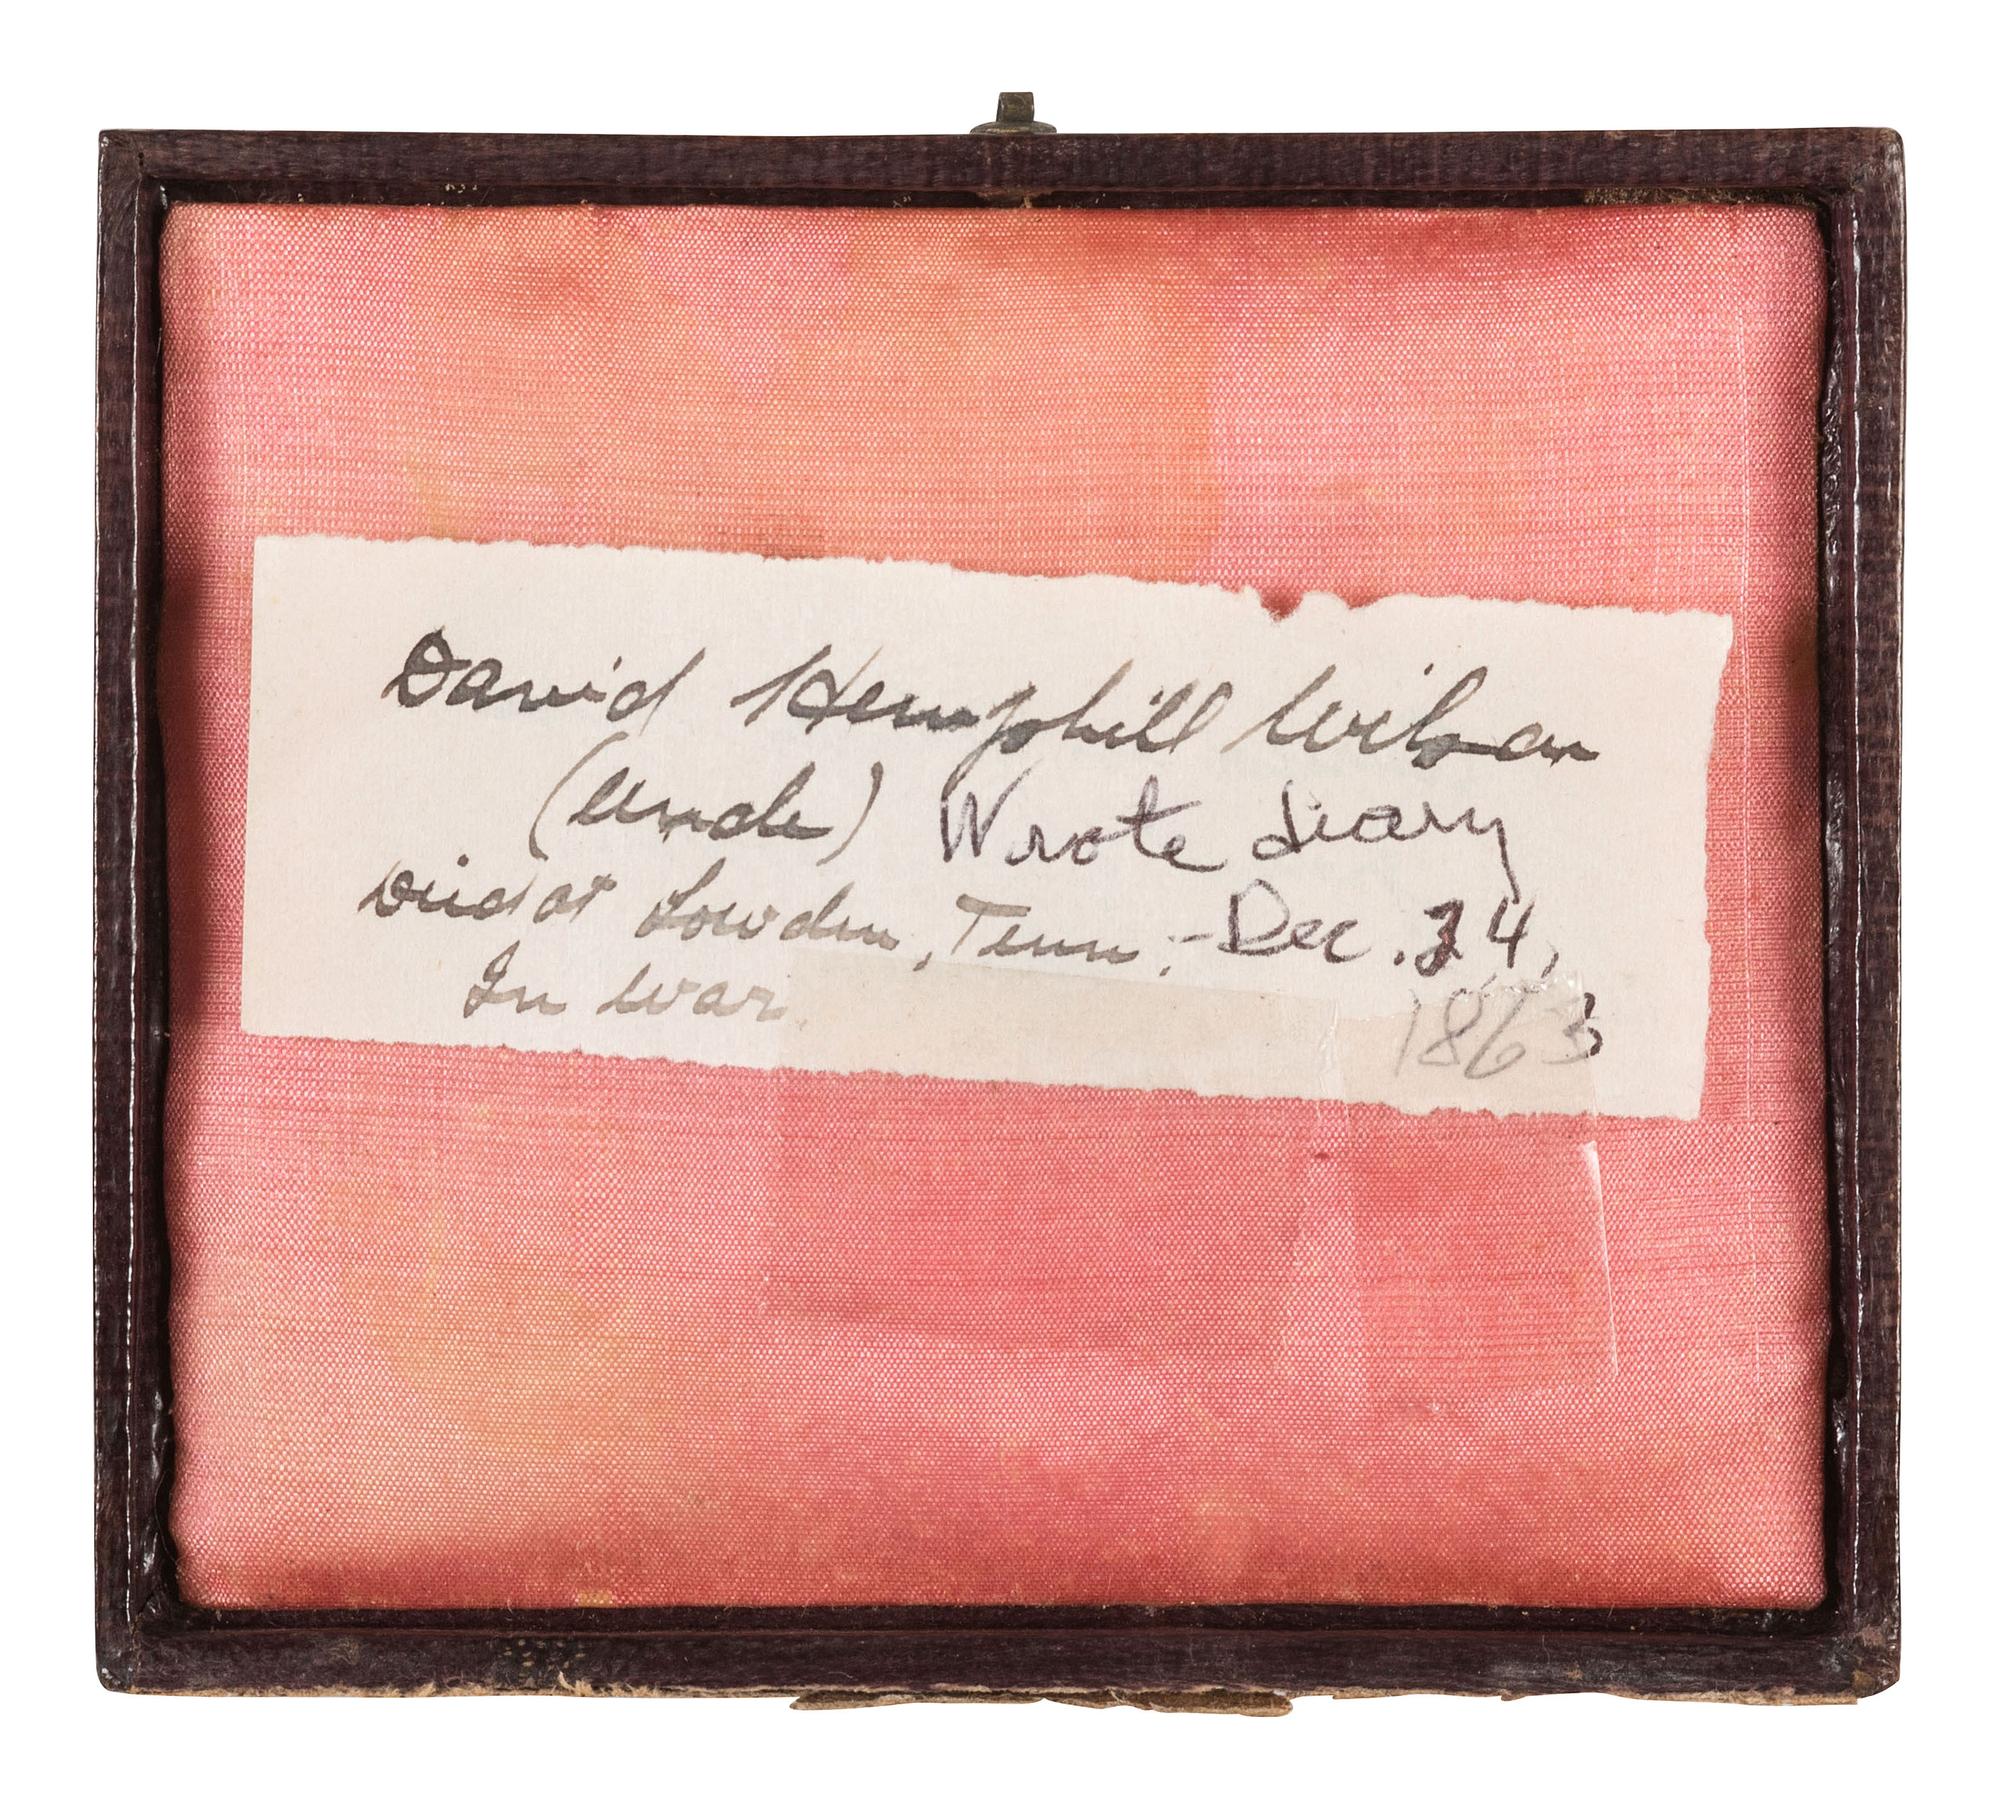 David Hemphill Wilson
(Uncle) Wrote diary
Died at Lowden, Tenn, - Dec. 24,
In war. 1863